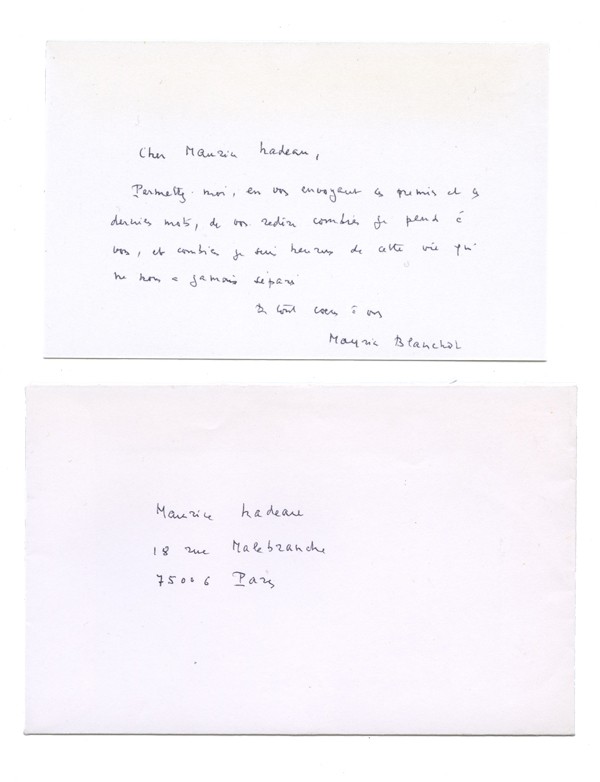 Cher Maurice Nadeau,
Permettez-moi, en vous envoyant ces premiers et ces
derniers mots, de vous redire combien je pense à
vous, et combien je suis heureux de cette vie qui
ne nous a jamais séparé
De tout coeur à vous
Maurice Blanchot
Maurice Nadeau
18 rue Malebranche
75006 Paris